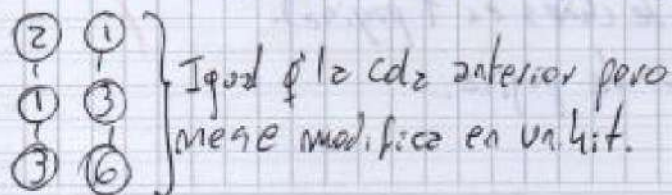 2 1
1 3
3 6
Igual q' la cola anterior pero
me se modifica en un hit.